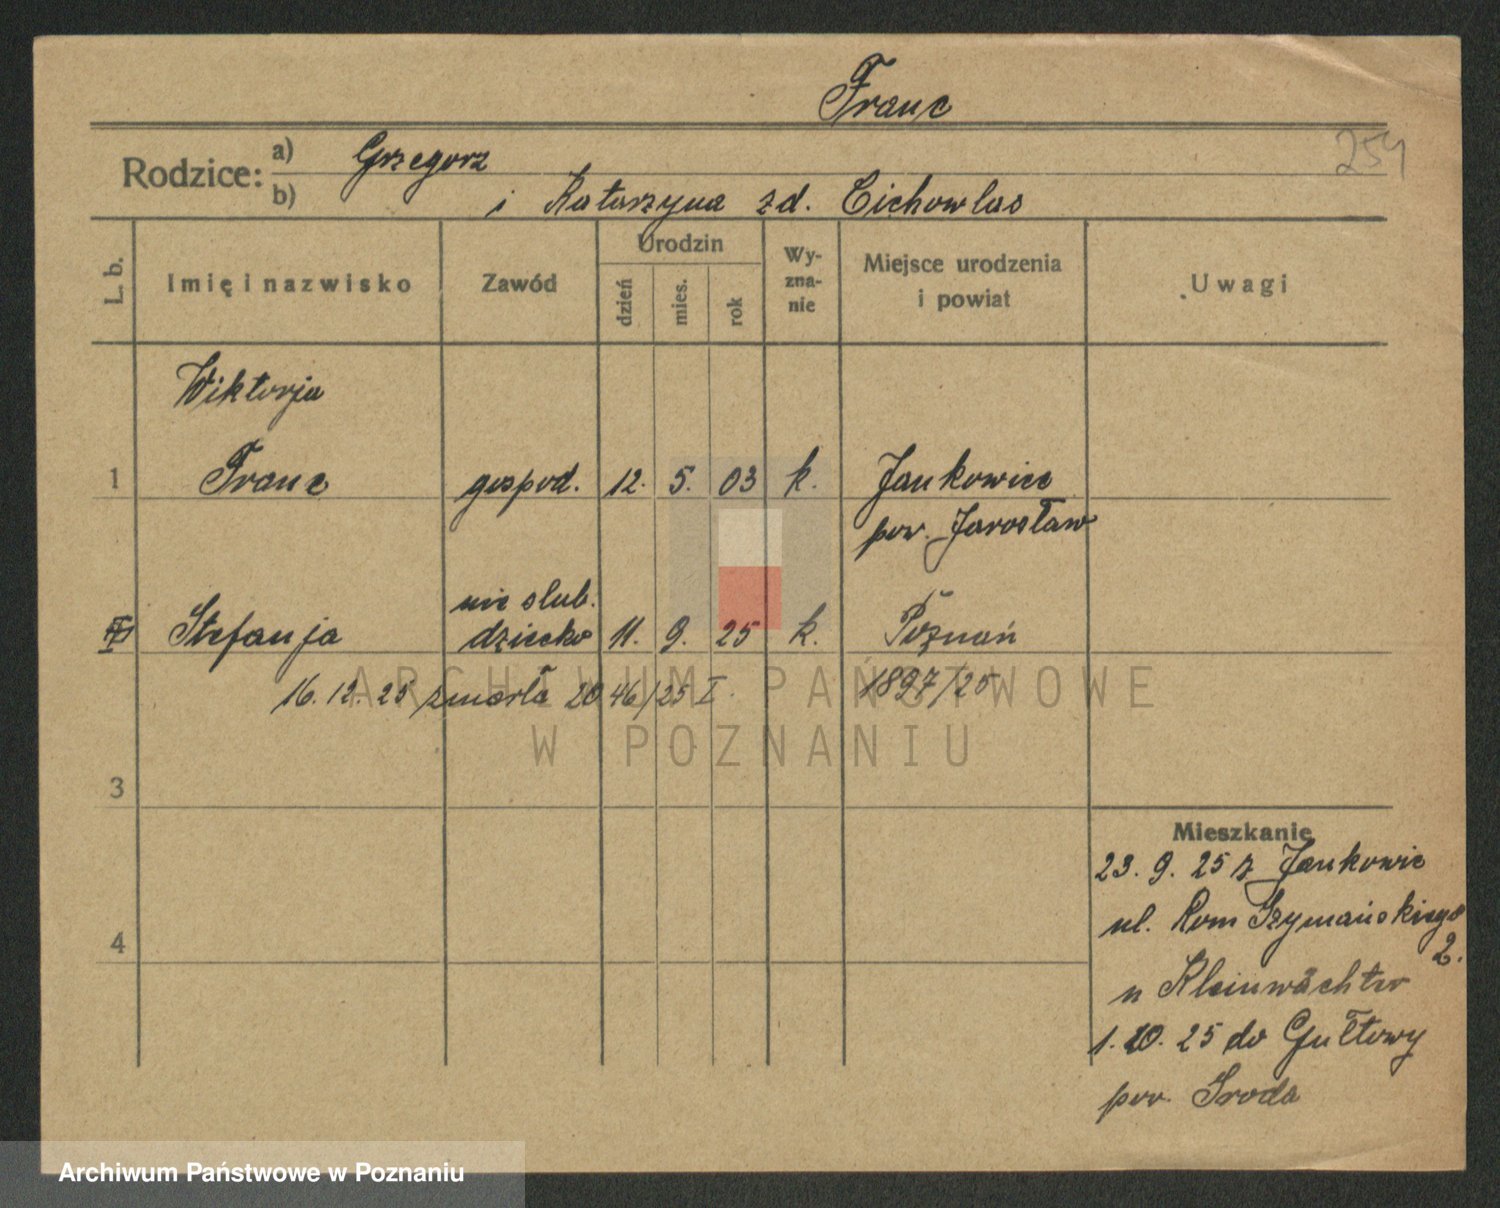 Franc
254
Rodzice: a) Grzegorz
b) i Katarzyna zd. Cichowlas
L. b.
Imię i nazwisko
Zawód
Urodzin
dzień
mies.
rok
Wy-
zna-
nie
Miejsce urodzenia
i powiat
Uwagi
Wiktorja
1 Franc gospod. 12. 5. 03 k. Jankowice
pow. Jarosław
nie slub.
Stefanja dziecko 11. 9. 25 k. Poznań
16. 12. 25 zmarła 2046/25 I. 1897/25
3
4
Mieszkanie
23. 9. 25 z Jankowic
ul. Rom Szymańskiego
2.
u Kleinwächter
1. 10. 25 do Gułtowy
pow. Sroda
ARCHIWUM PAŃSTWOWE
W POZNANIU
Archiwum Państwowe w Poznaniu